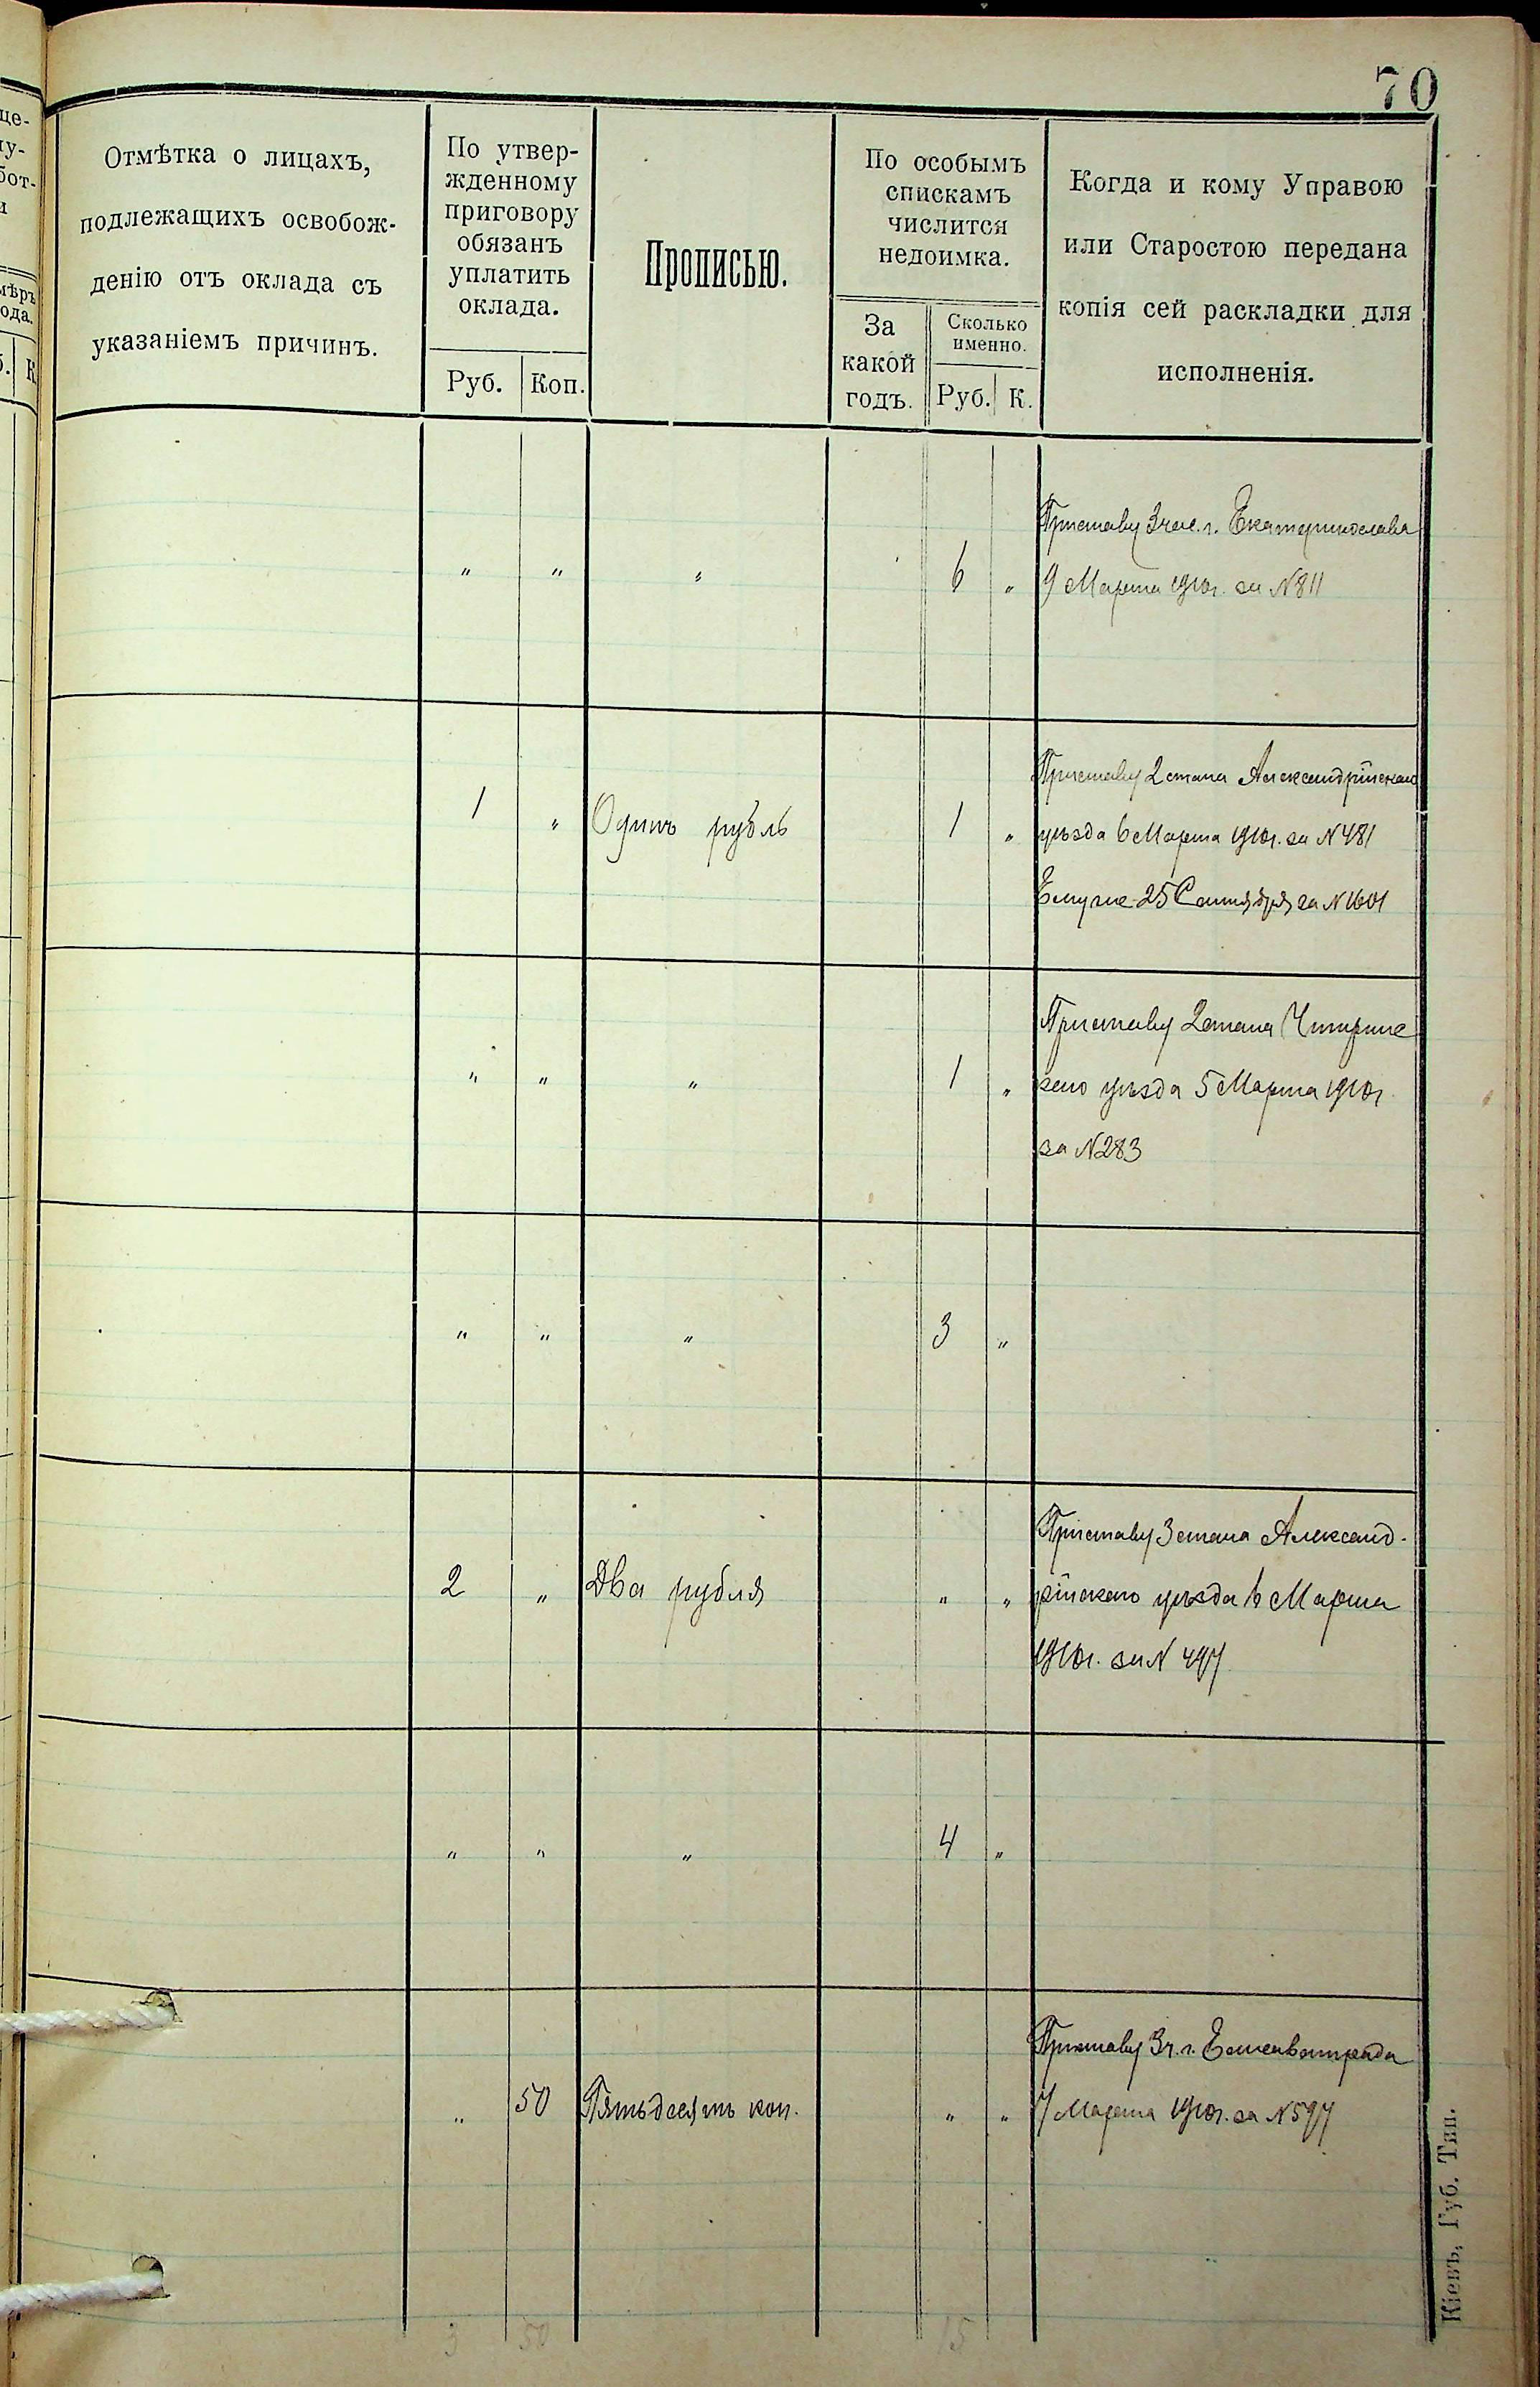 70
Отмѣтка о лицахъ,
подлежащихъ освобож-
денію отъ оклада съ
указаніемъ причинъ.
По утвер-
жденному
приговору
обязанъ
уплатить
оклада.
Руб. Коп.
Прописью.
По особымъ
спискамъ
числится
недоимка.
За
какой
годъ.
Сколько
именно.
Руб. К.
Когда и кому Управою
или Старостою передана
копія сей раскладки для
исполненія.
Приставу 3 час. г. Екатеринослава
" " " 6 " 9 Марта 1910г. за N 811
Приставу 2 стана Александрійскаго
1 " Одинъ рубль 1 " уѣзда 6 Марта 1910г. за N 481
Ему же 25 Сентября за N 1601
Приставу 2 стана Чигиринс
" " " 1 " каго уѣзда 5 Марта 1910г
за N 283
" " " 3 "
Приставу 3 стана Александ-
2 " Два рубля " " рійскаго уѣзда 6 Марта
1910г. за N 497
" " " 4 "
Приставу 3 ч. г. Елисаветграда
" 50 Пятьдесятъ коп. " " 7 Марта 1910г. за N 597
3 50 15
Кіевъ, Губ. Тип.